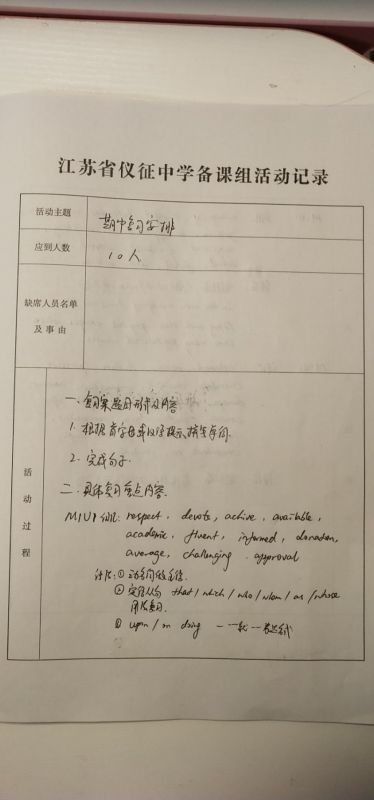 江苏省仪征中学备课组活动记录
活动主题 期中复习安排
应到人数 10人
缺席人员名单
及事由
活动过程
一、复习案题目形式及内容
1. 根据首字母或汉语提示, 填空单词.
2. 完成句子
二、具体复习重点内容.
M1U1 respect, devote, achive, available,
academic, fluent, informed, donation,
average, challenging. approval
语法: ① 动名词做主语.
② 定语从句 that / which / who / whom / as / whose
用法复习.
③ upon / on doing 一…就…表达式